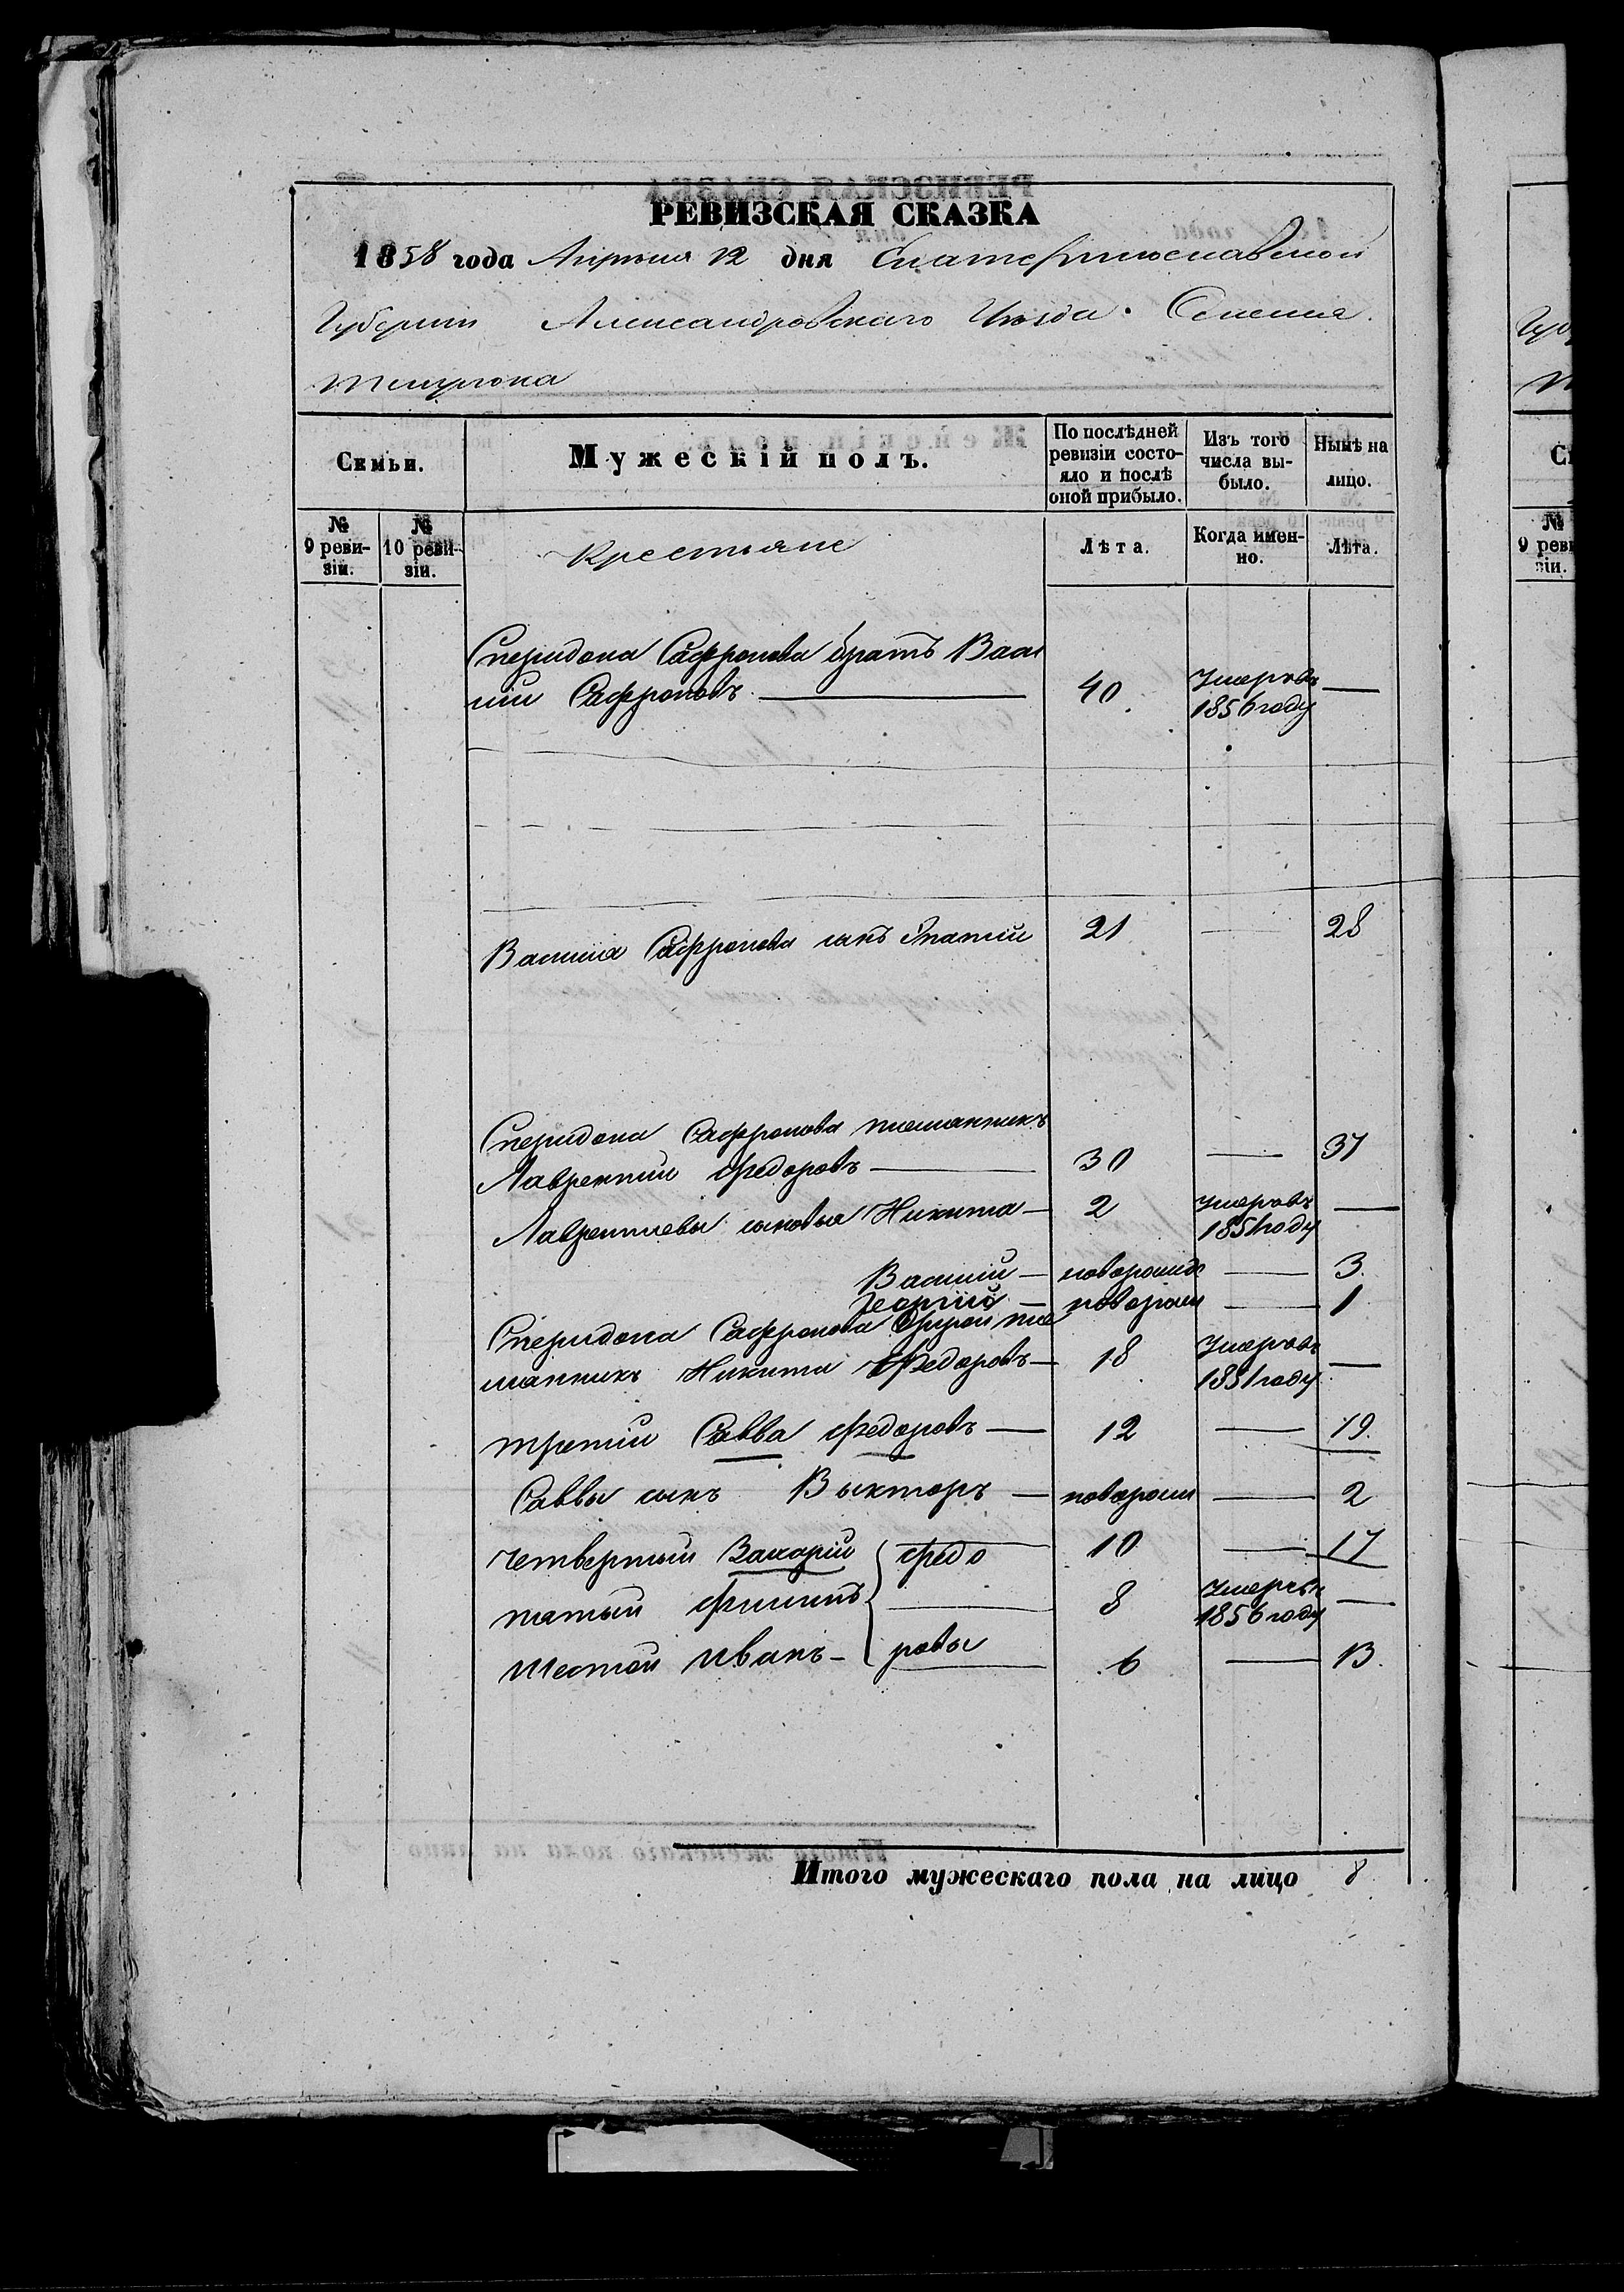 РЕВИЗСКАЯ СКАЗКА
1858 года Апреля 12 дня Екатеринославской
Губерніи Александровскаго Уезда. Селенія
Темрюка
Семьи.
Мужескій полъ.
По послѣдней ревизіи состо-яло и послѣ оной прибыло.
Изъ того числа вы-было.
Нынѣ на лицо.
№ 9 реви-зіи.
№ 10 реви-зіи.
Крестьяне
Лѣта.
Когда имен-но.
Лѣта.
Сперидона Сафронова братъ Васи
лій Сафроновъ — 40 Умеръ въ 1856 году —
Василія Сафронова сынъ Игнатій 21 — 28
Сперидона Сафронова племянникъ
Лаврентій Федоровъ — 30 — 37
Лаврентиевы сыновья Никита — 2 Умеръ въ 1851 году —
Василій — новорожде — 3
Георгій —новорож — 1
Сперидона Сафронова другой пле
мянникъ Никита Федоровъ — 18 Умеръ въ 1851 году —
третій Савва Федоровъ — 12 — 19
Саввы сынъ Выкторъ — новорож — 2
четвертый Захарій Федо 10 — 17
пятый Филипъ 8 Умеръ въ 1856 году —
шестой Иванъ — ровы 6 — 13
Итого мужескаго пола на лицо 8
№ 9 реви зіи.